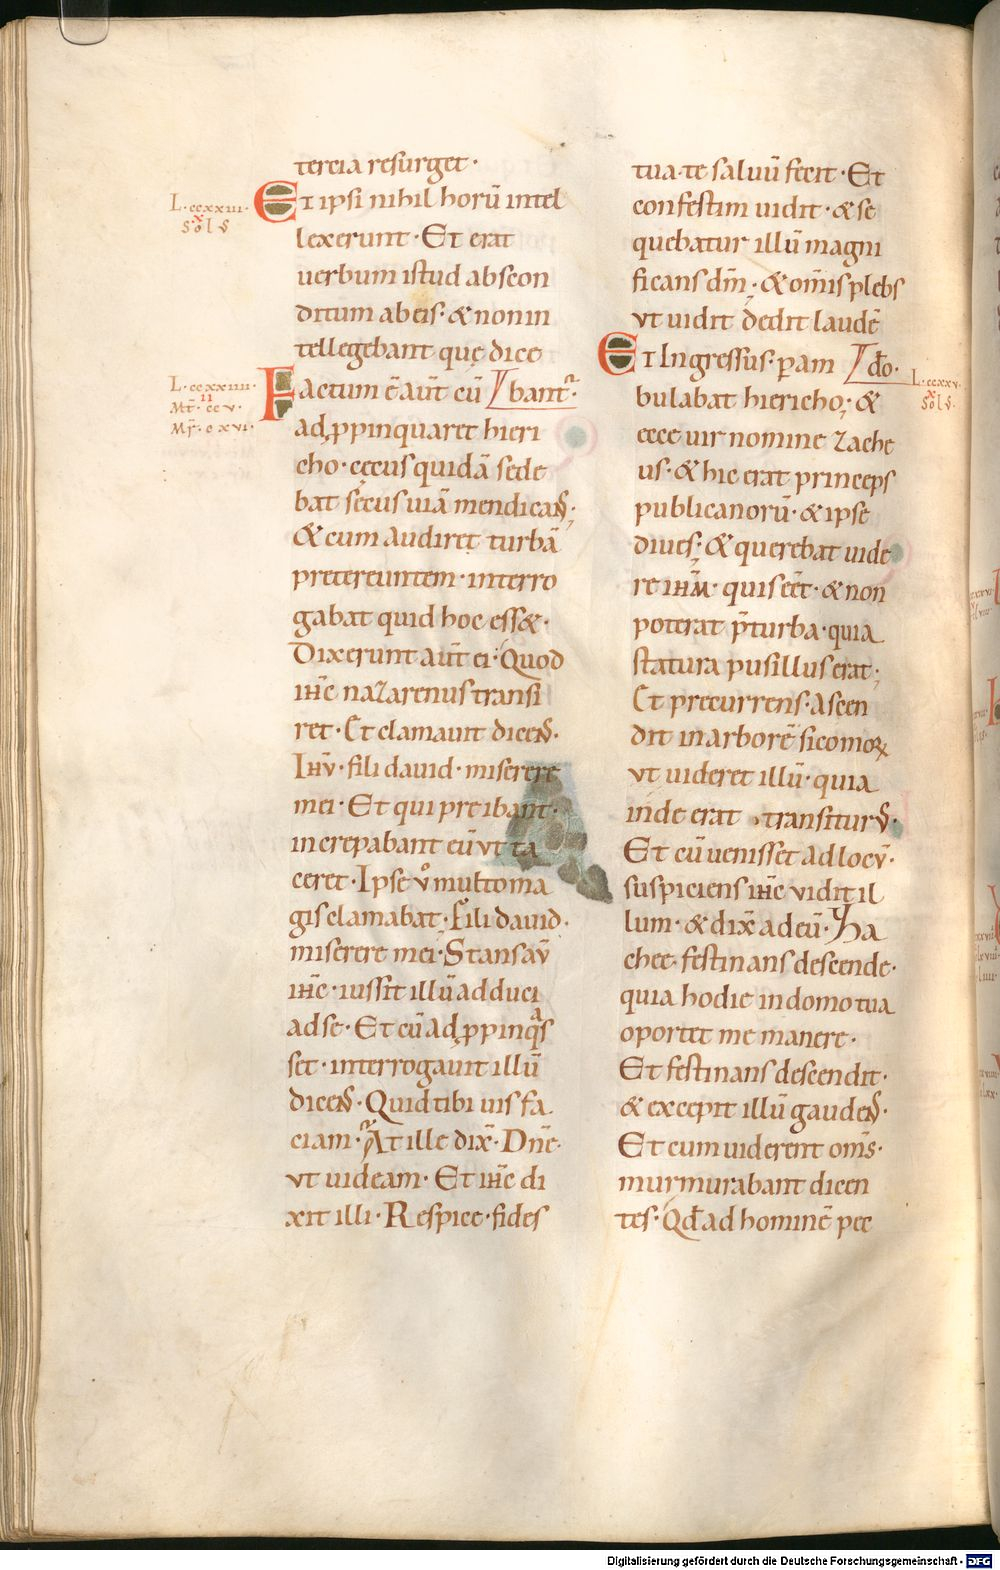 tercia resurget ·
Et ipsi nihil horū intel
lexerunt · Et erat
uerbum istud abscon
ditum ab eis · & non in
tellegebant quę dice
L · ccxxiii ·
x
Sol S
Factum ē aūt cū bant᷑ ·
L · ccxxiiii ·
II
Mt · cc v ·
Mr · c xvi ·
adꝓpinquaret hieri
cho · cęcus quidā sede
bat secus uiā mendicanS ;
& cum audiret turbā
pretereuntem · interro
gabat quid hoc ess& ·
Dixerunt aūt ei · Quod
ihc̄ nazarenus transi
ret · Et clamauit dicenS ·
Ihv̄ · fili dauid · miserere
mei · Et qui preibant ·
increpabant eū vt ta
ceret · Ipse v̊ multo ma
gis clamabat · Fili dauid ·
miserere mei · Stans av̄
ihc̄ · iussit illū adduci
ad se · Et cū adꝓpinqᵃs
set · interrogauit illū
dicenS · Quid tibi uis fa
ciam · At ille dix̄ · Dn̄e ·
vt uideam · Et ihc̄ di
xit illi · Respice · fides
tua te saluū fecit · Et
confestim uidit · & se
quebatur illū magni
ficans dm̄ · & om̄is plebs
vt uidit dedit laudē
Et Ingressus · ꝑam dō ·
L · ccxxv ·
x
Sol S ·
bulabat hiericho ; &
ecce uir nomine zache
us · & hic erat princeps
publicanorū · & ipse
diues ; & querebat uide
re ihm̄ · quis eēt · & non
poterat p̄ turba · quia
statura pusillus erat ;
Et precurrens · ascen
dit in arborē sicomoꝝ
vt uideret illū · quia
inde erat · transiturS ·
Et cū uenisset ad locv̄ ·
suspiciens ihc̄ vidit il
lum · & dix̄ ad eū · Za
chee · festinans descende ·
quia hodie in domo tua
oportet me manere ·
Et festinans descendit ·
& excepit illū gaudenS ·
Et cum uiderent om̄s ·
murmurabant dicen
tes · Qđ ad hominē pec
Digitalisierung gefördert durch die Deutsche Forschungsgemeinschaft · DFG